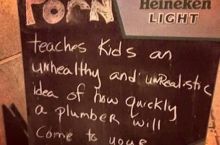 PORN
Heineken
LIGHT
teaches kids an
unhealthy and unRealistic
idea of how quickly
a plumber will
come to your